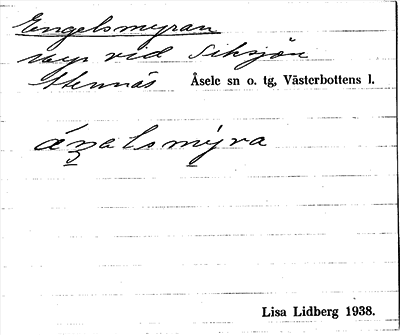 Engelsmyran
myr vid Siksjön
Stennäs Åsele sn o. tg, Västerbottens l.
áŋəlsmýra
Lisa Lidberg 1938.